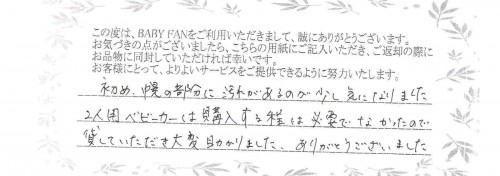 この度は、BABY FANをご利用いただきまして、誠にありがとうございます。
お気づきの点がございましたら、こちらの用紙にご記入いただき、ご返却の際に
お品物に同封していただければ幸いです。
お客様にとって、よりよいサービスをご提供できるように努力いたします。
初め、幌の部分に汚れがあるのが少し気になりました
2人用ベビーカーは購入する程は必要でなかったので
貸していただき大変助かりました、ありがとうございました